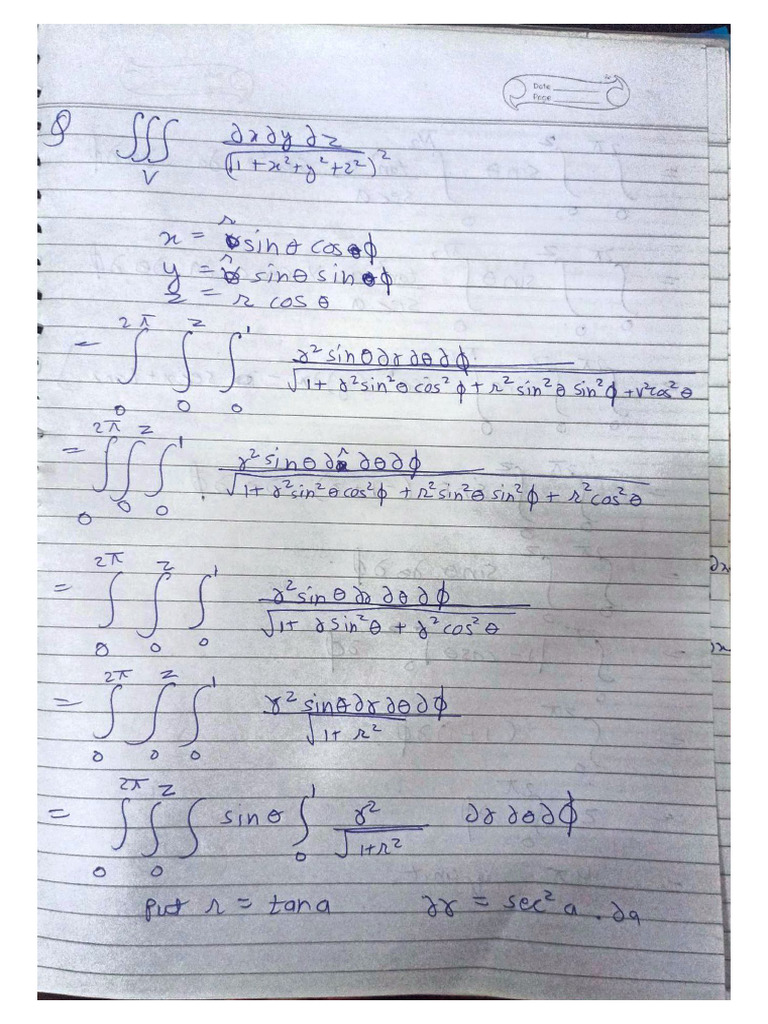 Date
Page
Q ∭_V ∂x∂y∂z / (√1+x²+y²+z²)²
x = r sinθ cosϕ
y = r sinθ sinϕ
z = r cosθ
= ∫₀^{2π} ∫₀^{z} ∫₀^{1} r² sinθ ∂r ∂θ ∂ϕ / √1+r²sin²θ cos²ϕ + r² sin²θ sin²ϕ + r²cos²θ
= ∫₀^{2π} ∫₀^{z} ∫₀^{1} r² sinθ ∂r ∂θ ∂ϕ / √1+r²sin²θcos²ϕ + r²sin²θ sin²ϕ + r²cos²θ
= ∫₀^{2π} ∫₀^{z} ∫₀^{1} r² sinθ ∂r ∂θ ∂ϕ / √1+ r sin²θ + r² cos²θ
= ∫₀^{2π} ∫₀^{z} ∫₀^{1} r² sinθ ∂r ∂θ ∂ϕ / √1+ r²
= ∫₀^{2π} ∫₀^{z} ∫ sinθ ∫₀^{1} r² / √1+r² ∂r ∂θ ∂ϕ
put r = tan a ∂r = sec² a . ∂a